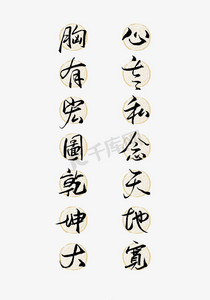 心无私念天地寬
胸有宏圖乾坤大
千库网